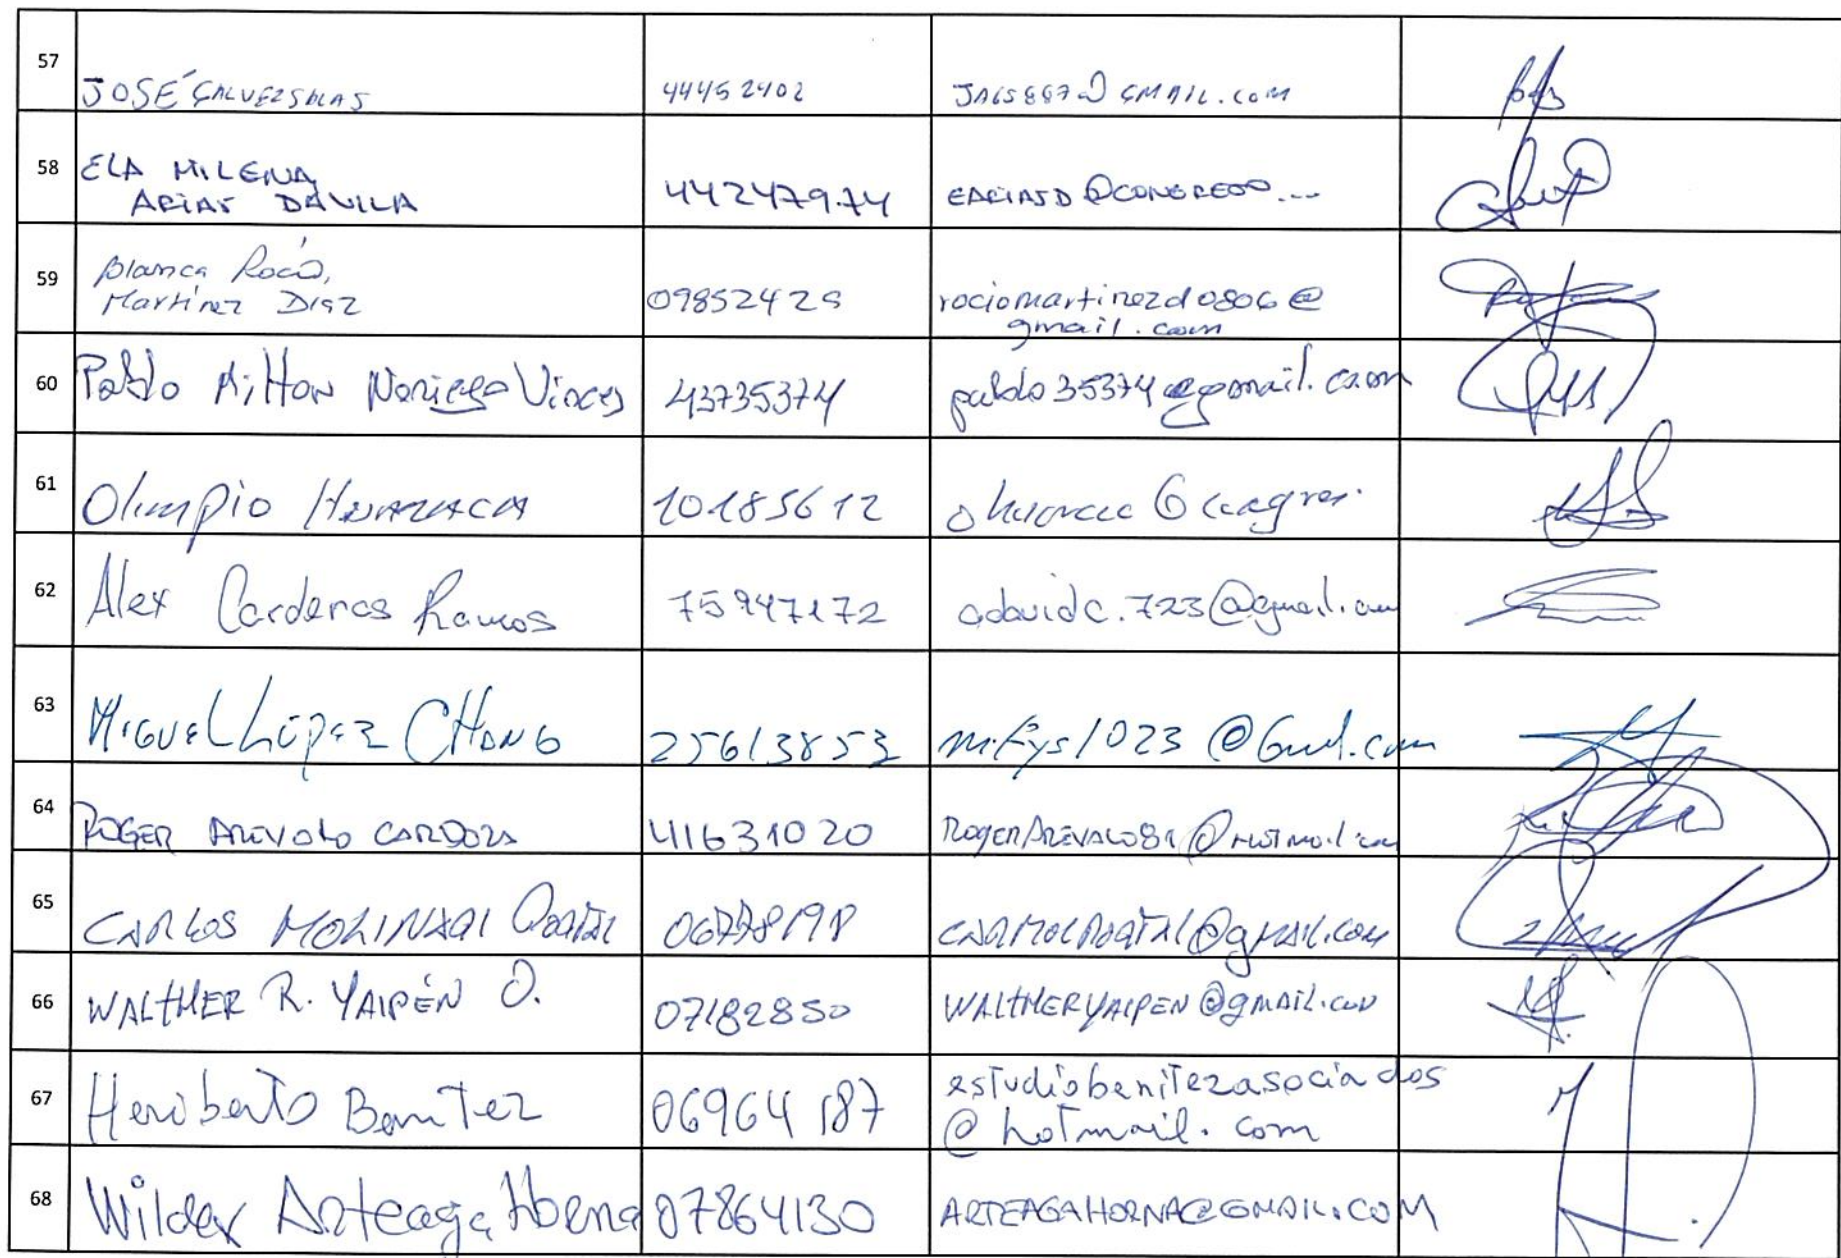 57 JOSÉ GALVEZ SALAS 44452402 JAGS887@GMAIL.COM
58 ELA MILENA
ARIAS DAVILA 44247974 EARIASD@CONGRESO...
59 Blanca Rocío,
Martínez Díaz 09852429 rociomartinezd0806@
gmail.com
60 Pablo Milton Noriega Vinces 43735374 pablo35374@gmail.com
61 Olimpio HUARACA 10185612
62 Alex Cardenas Ramos 75947172 adavidc.723@gmail.com
63 MIGUEL LÓPEZ CHONG 25613853
64 ROGER AREVALO CARDOZA 41631020 ROGERAREVALO81@HOTMAIL.com
65 CARLOS MOLINARI PORTAL CARMOLPORTAL@gMAIL.COM
66 WALTHER R. YAIPÉN O. 07182850 WALTHERYAIPEN@gMAIL.COM
67 Heriberto Benitez 06964187 estudiobenitezasociados
@hotmail.com
68 Wilder Arteaga Horna 07864130 ARTEAGAHORNA@GMAIL.COM